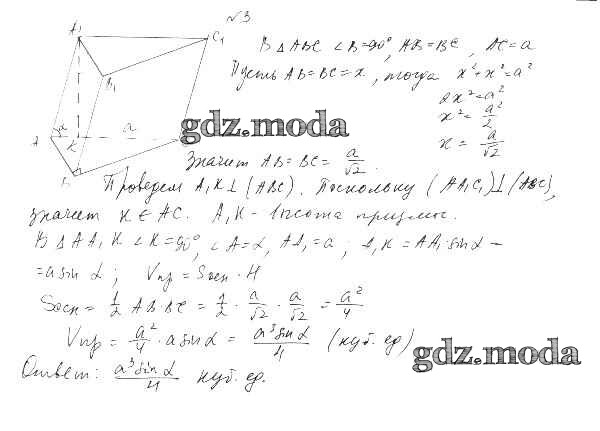 №3
A₁
C₁
B₁
A
α
K
a
B
В △ABC ∠B=90°, AB=BC, AC=a
Пусть AB=BC=x, тогда x²+x²=a²
2x²=a²
x²=a²/2
x=a/√2
gdz.moda
Значит AB=BC=a/√2.
Проведем A₁K⊥(ABC). Поскольку (AA₁C₁)⊥(ABC),
значит K∈AC. A₁K - высота призмы.
В △AA₁K ∠K=90°, ∠A=α, AA₁=a; A₁K=AA₁·sinα=
=a sinα; Vпр=Sосн·H
Sосн=1/2 AB·BC=1/2·a/√2·a/√2=a²/4
Vпр=a²/4·a sinα=a³sinα/4 (куб.ед)
gdz.moda
Ответ: a³sinα/4 куб.ед.